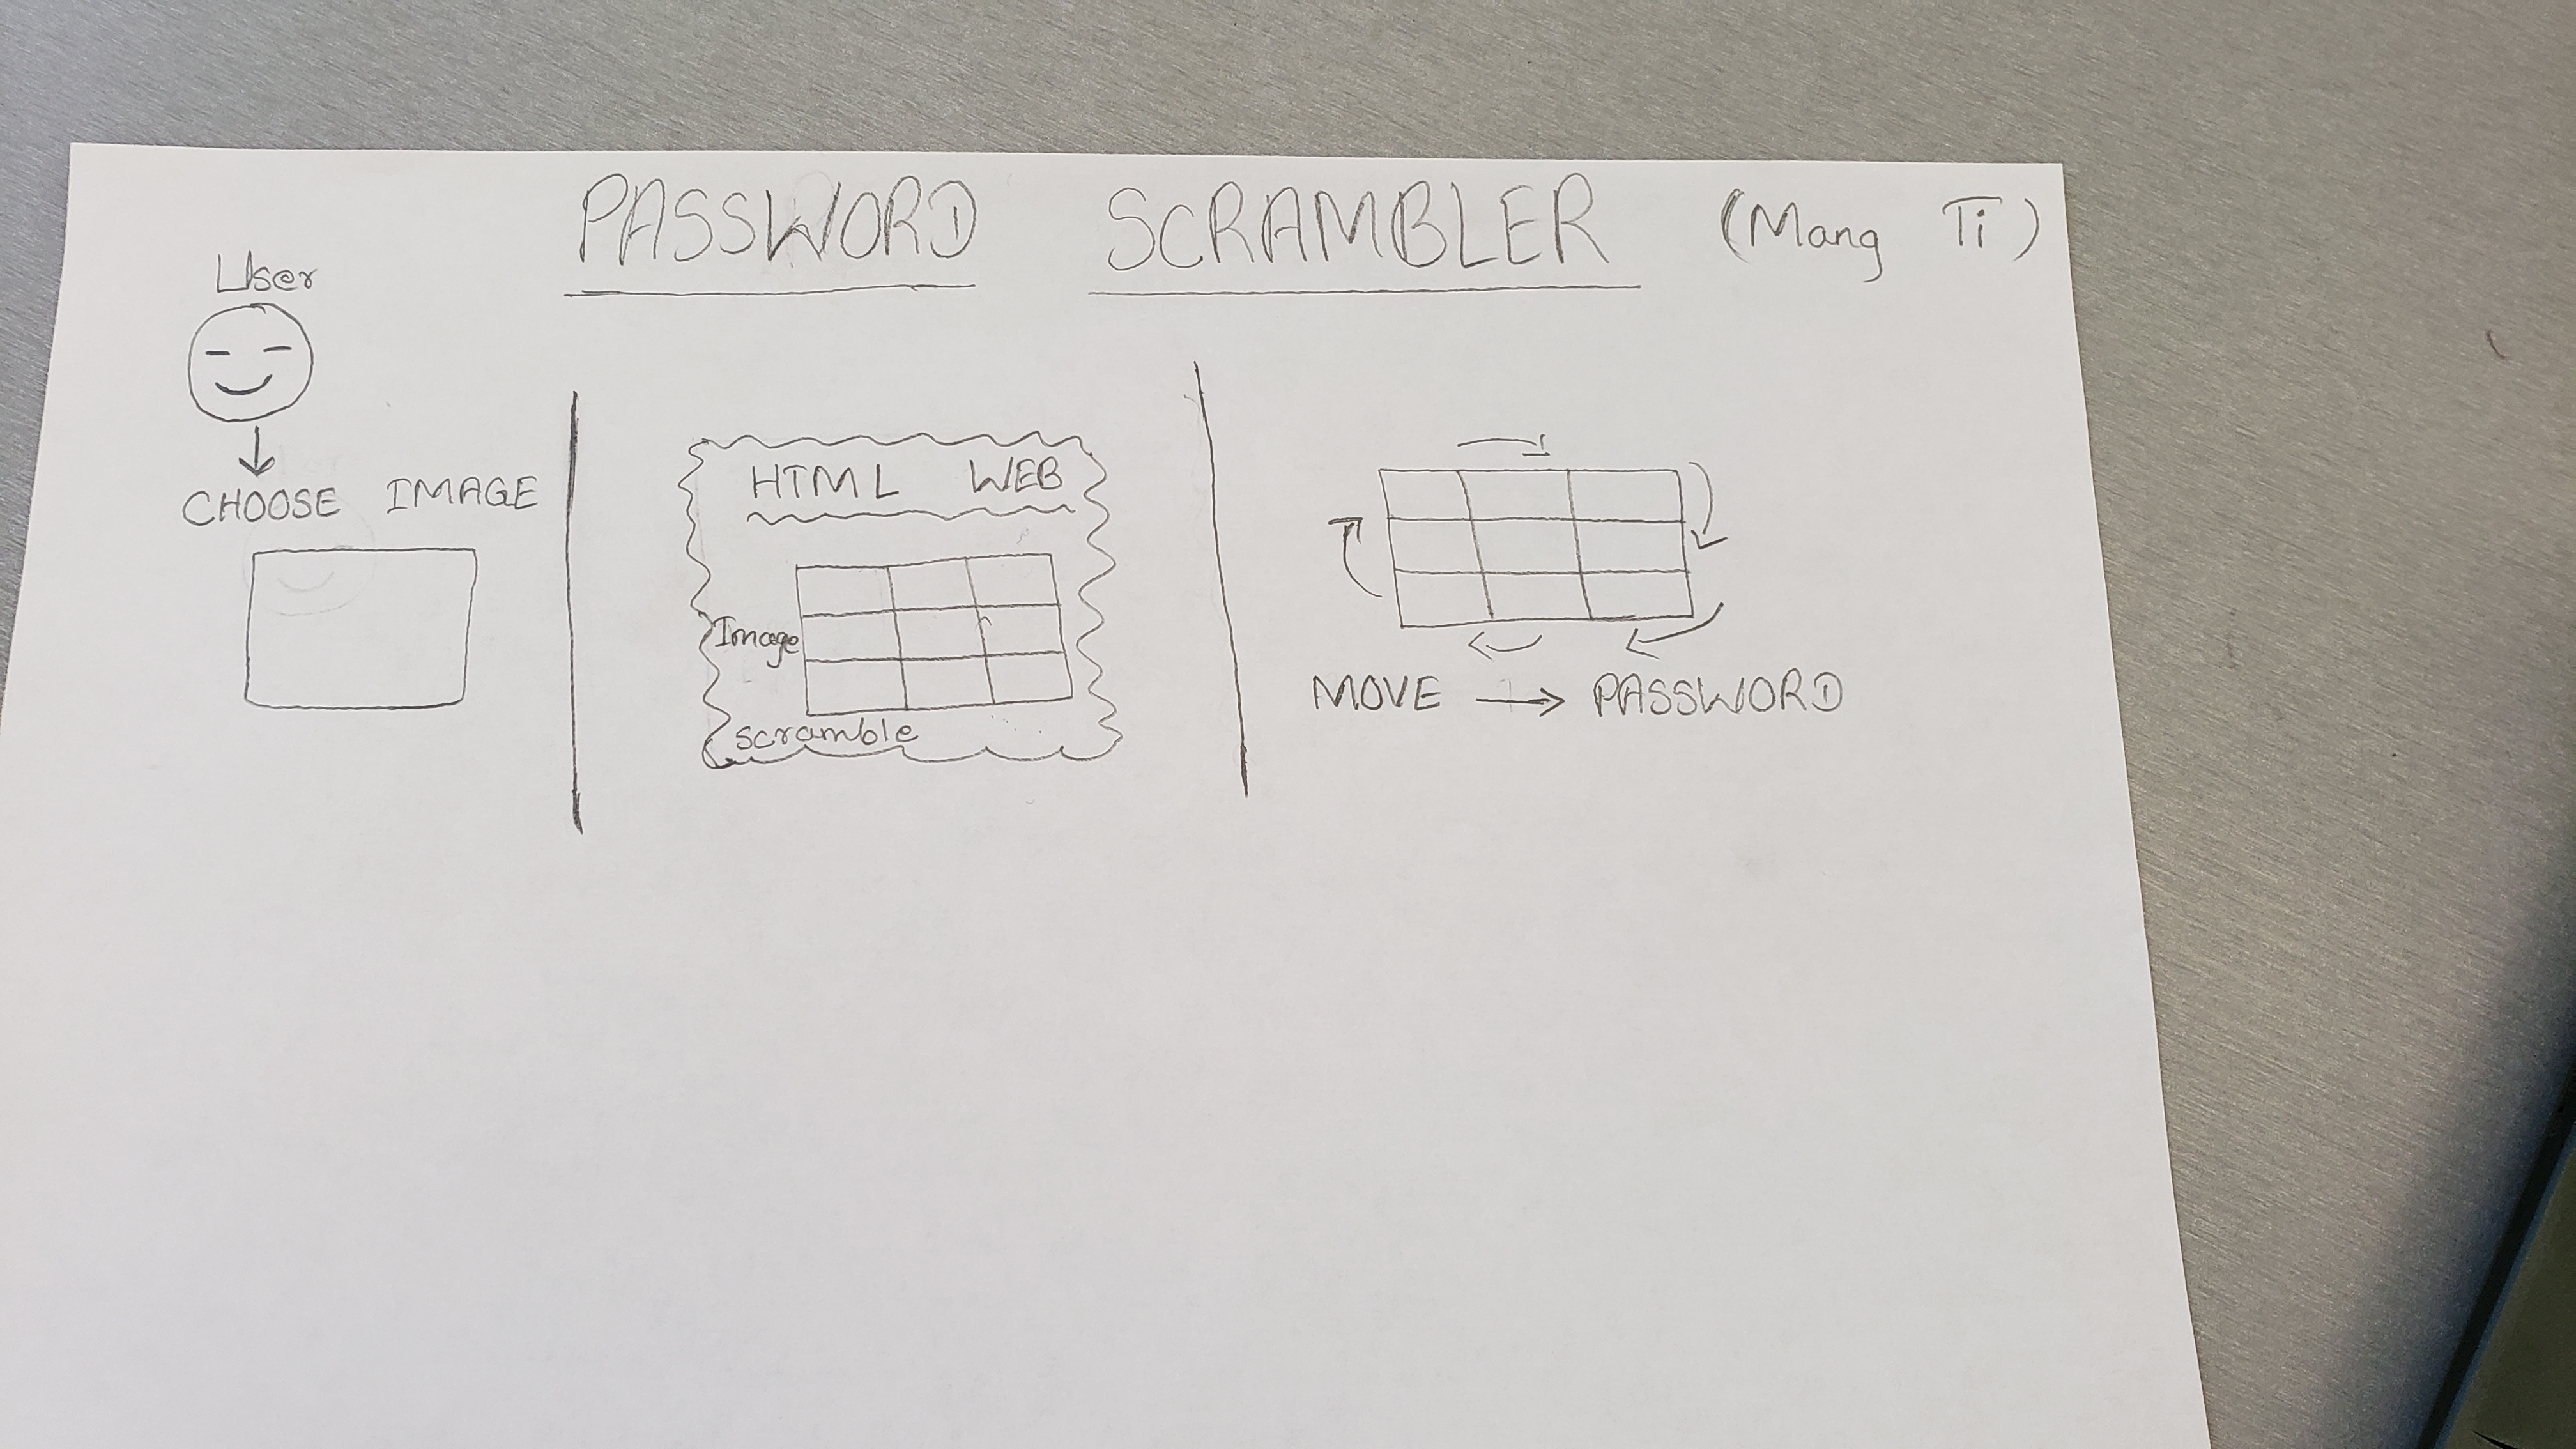 PASSWORD SCRAMBLER (Mang Ti)
User
CHOOSE IMAGE
HTML WEB
Image
scramble
MOVE → PASSWORD